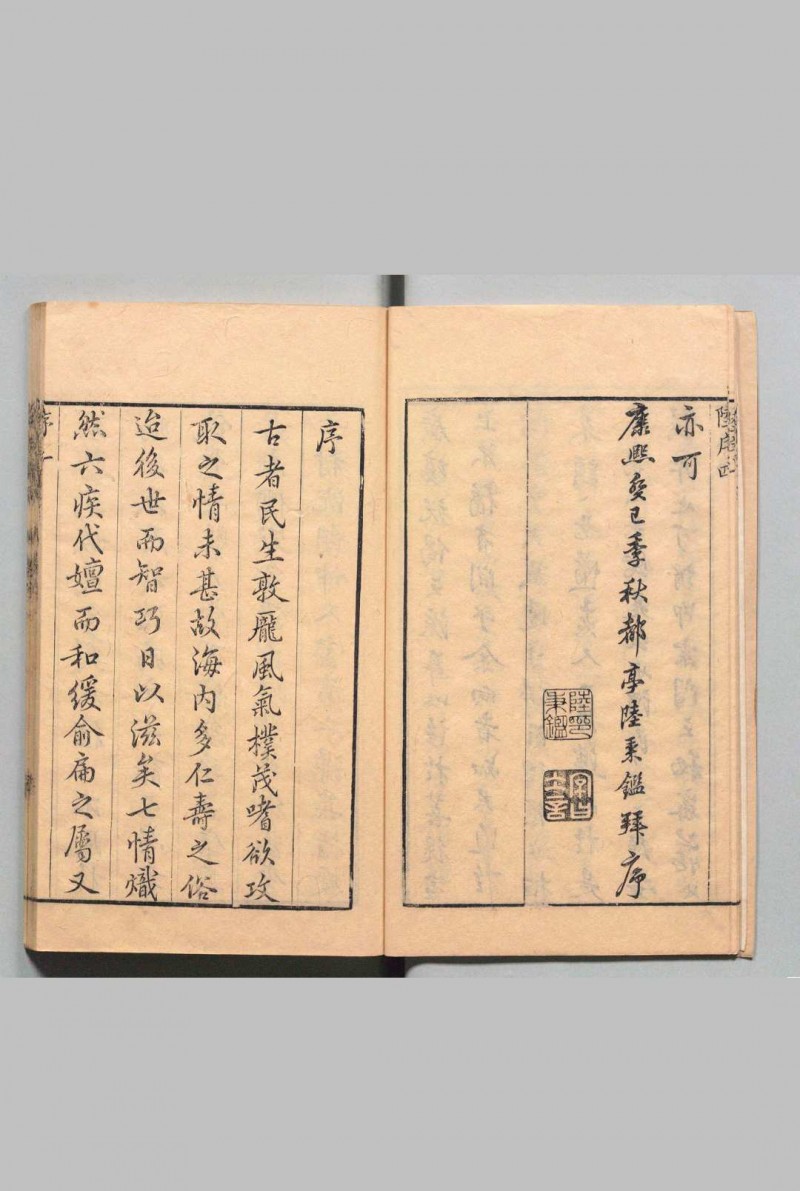 亦可
康熙癸巳季秋都亭陸秉鑑拜序
陸序
序
古者民生敦龐風氣樸茂嗜欲攻
取之情未甚故海內多仁壽之俗
迨後世而智巧日以滋矣七情熾
然六疾代嬗而和緩俞扁之屬又
序一